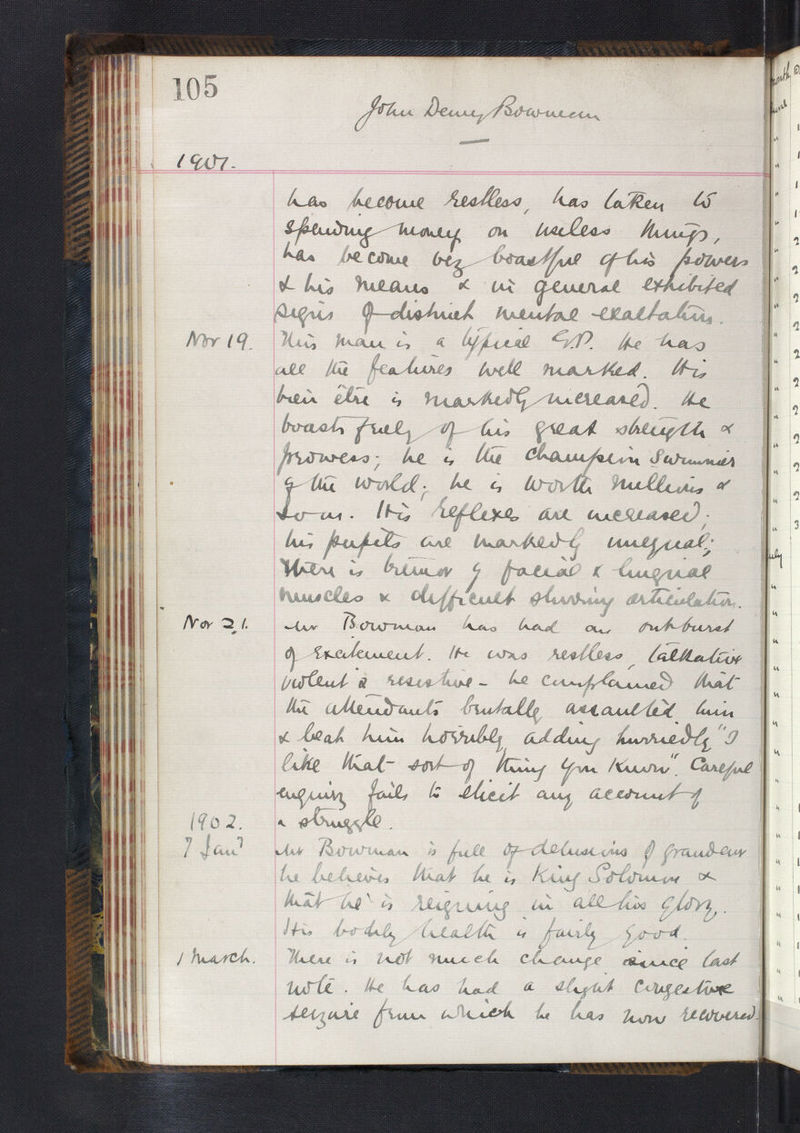 105
John Demy Bowman
1901.
has become restless, has taken to
spending money on useless things,
has become very boastful of his powers
& his means & in general exhibited
signs of distinct mental exaltation.
Nov 19. This man is a typical G.P. He has
all the features well marked. His
bien être is markedly increased. He
boasts freely of his great strength &
prowess; he is the champion swimmer
of the world; he is worth millions &
so on. His reflexes are increased;
his pupils are markedly unequal;
there is tremor of facial & lingual
muscles & difficult slurring articulation.
Nov 21. Mr Bowman has had an outburst
of excitement. He was restless, talkative
violent & resistive - he complained that
the attendants brutally assaulted him
& beat him horribly adding hurriedly "I
like that sort of thing you know". Careful
enquiry fails to elicit any account of
1902. a struggle.
7 Jany Mr Bowman is full of delusions of grandeur
he believes that he is King Solomon &
that he is reigning in all his glory.
His bodily health is fairly good.
1 March. There is not much change since last
note. He has had a slight congestive
seizure from which he has now recovered.